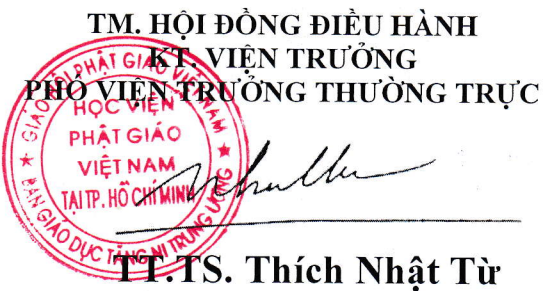 TM. HỘI ĐỒNG ĐIỀU HÀNH
KT. VIỆN TRƯỞNG
PHÓ VIỆN TRƯỞNG THƯỜNG TRỰC
GIÁO HỘI PHẬT GIÁO VIỆT NAM
HỌC VIỆN
PHẬT GIÁO
VIỆT NAM
TẠI TP. HỒ CHÍ MINH
BAN GIÁO DỤC TĂNG NI TRUNG ƯƠNG
TT.TS. Thích Nhật Từ